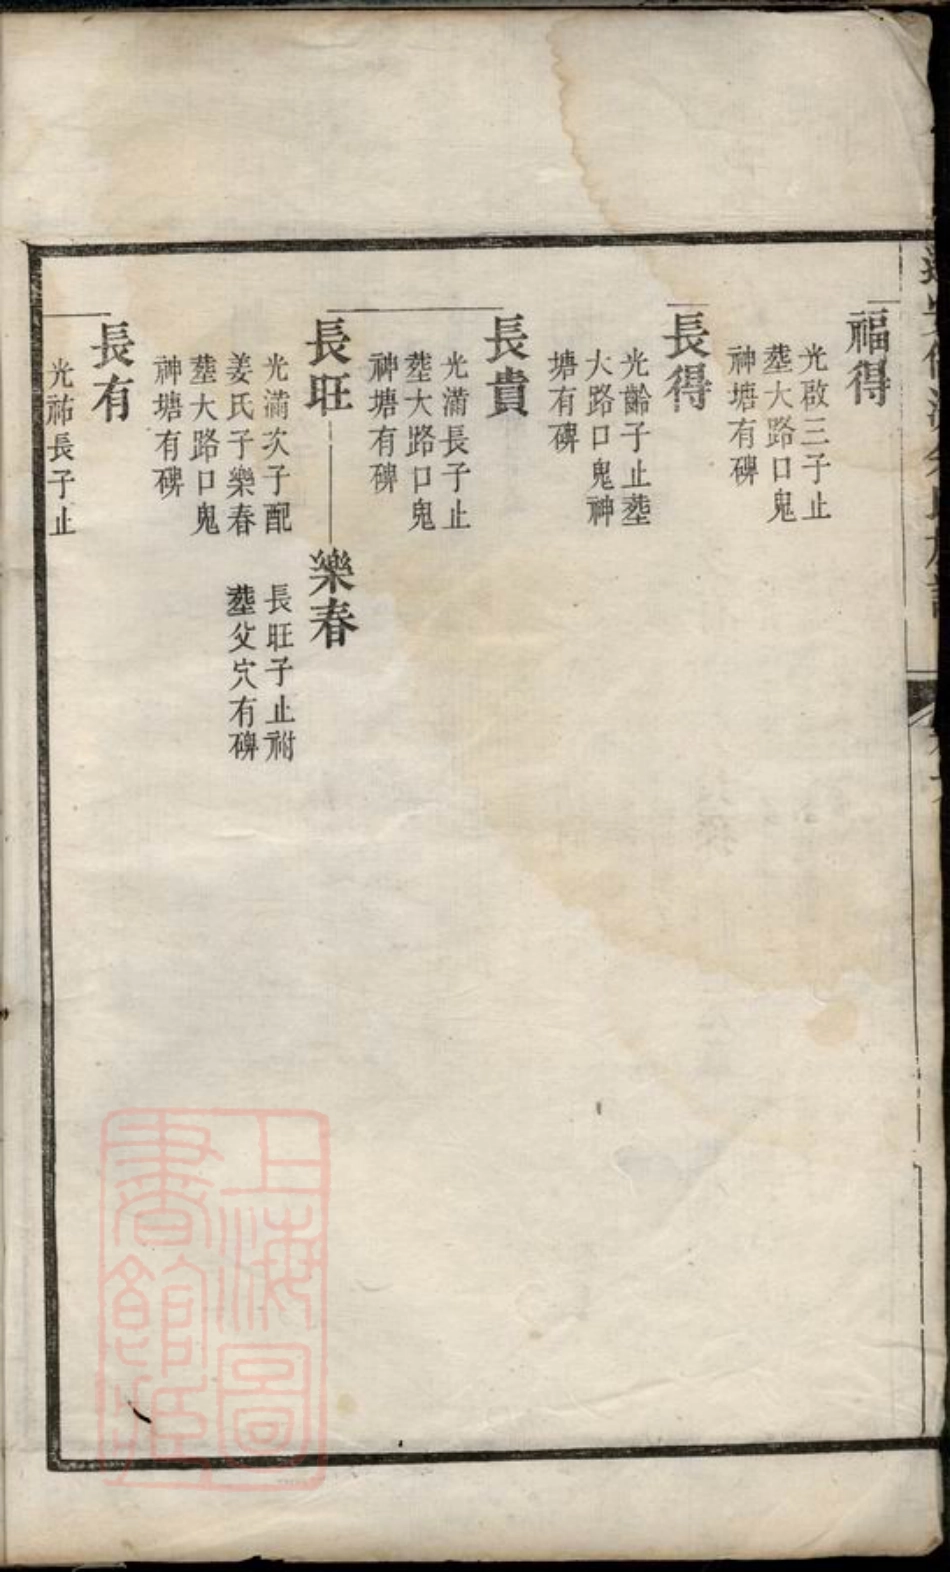 福得
光啟三子止
塟大路口鬼
神塘有碑
長得
光齡子止塟
大路口鬼神
塘有碑
長貴
光滿長子止
塟大路口鬼
神塘有碑
長旺
光滿次子配
姜氏子樂春
塟大路口鬼
神塘有碑
樂春
長旺子止祔
塟父穴有碑
長有
光祐長子止
上海圖
書館藏